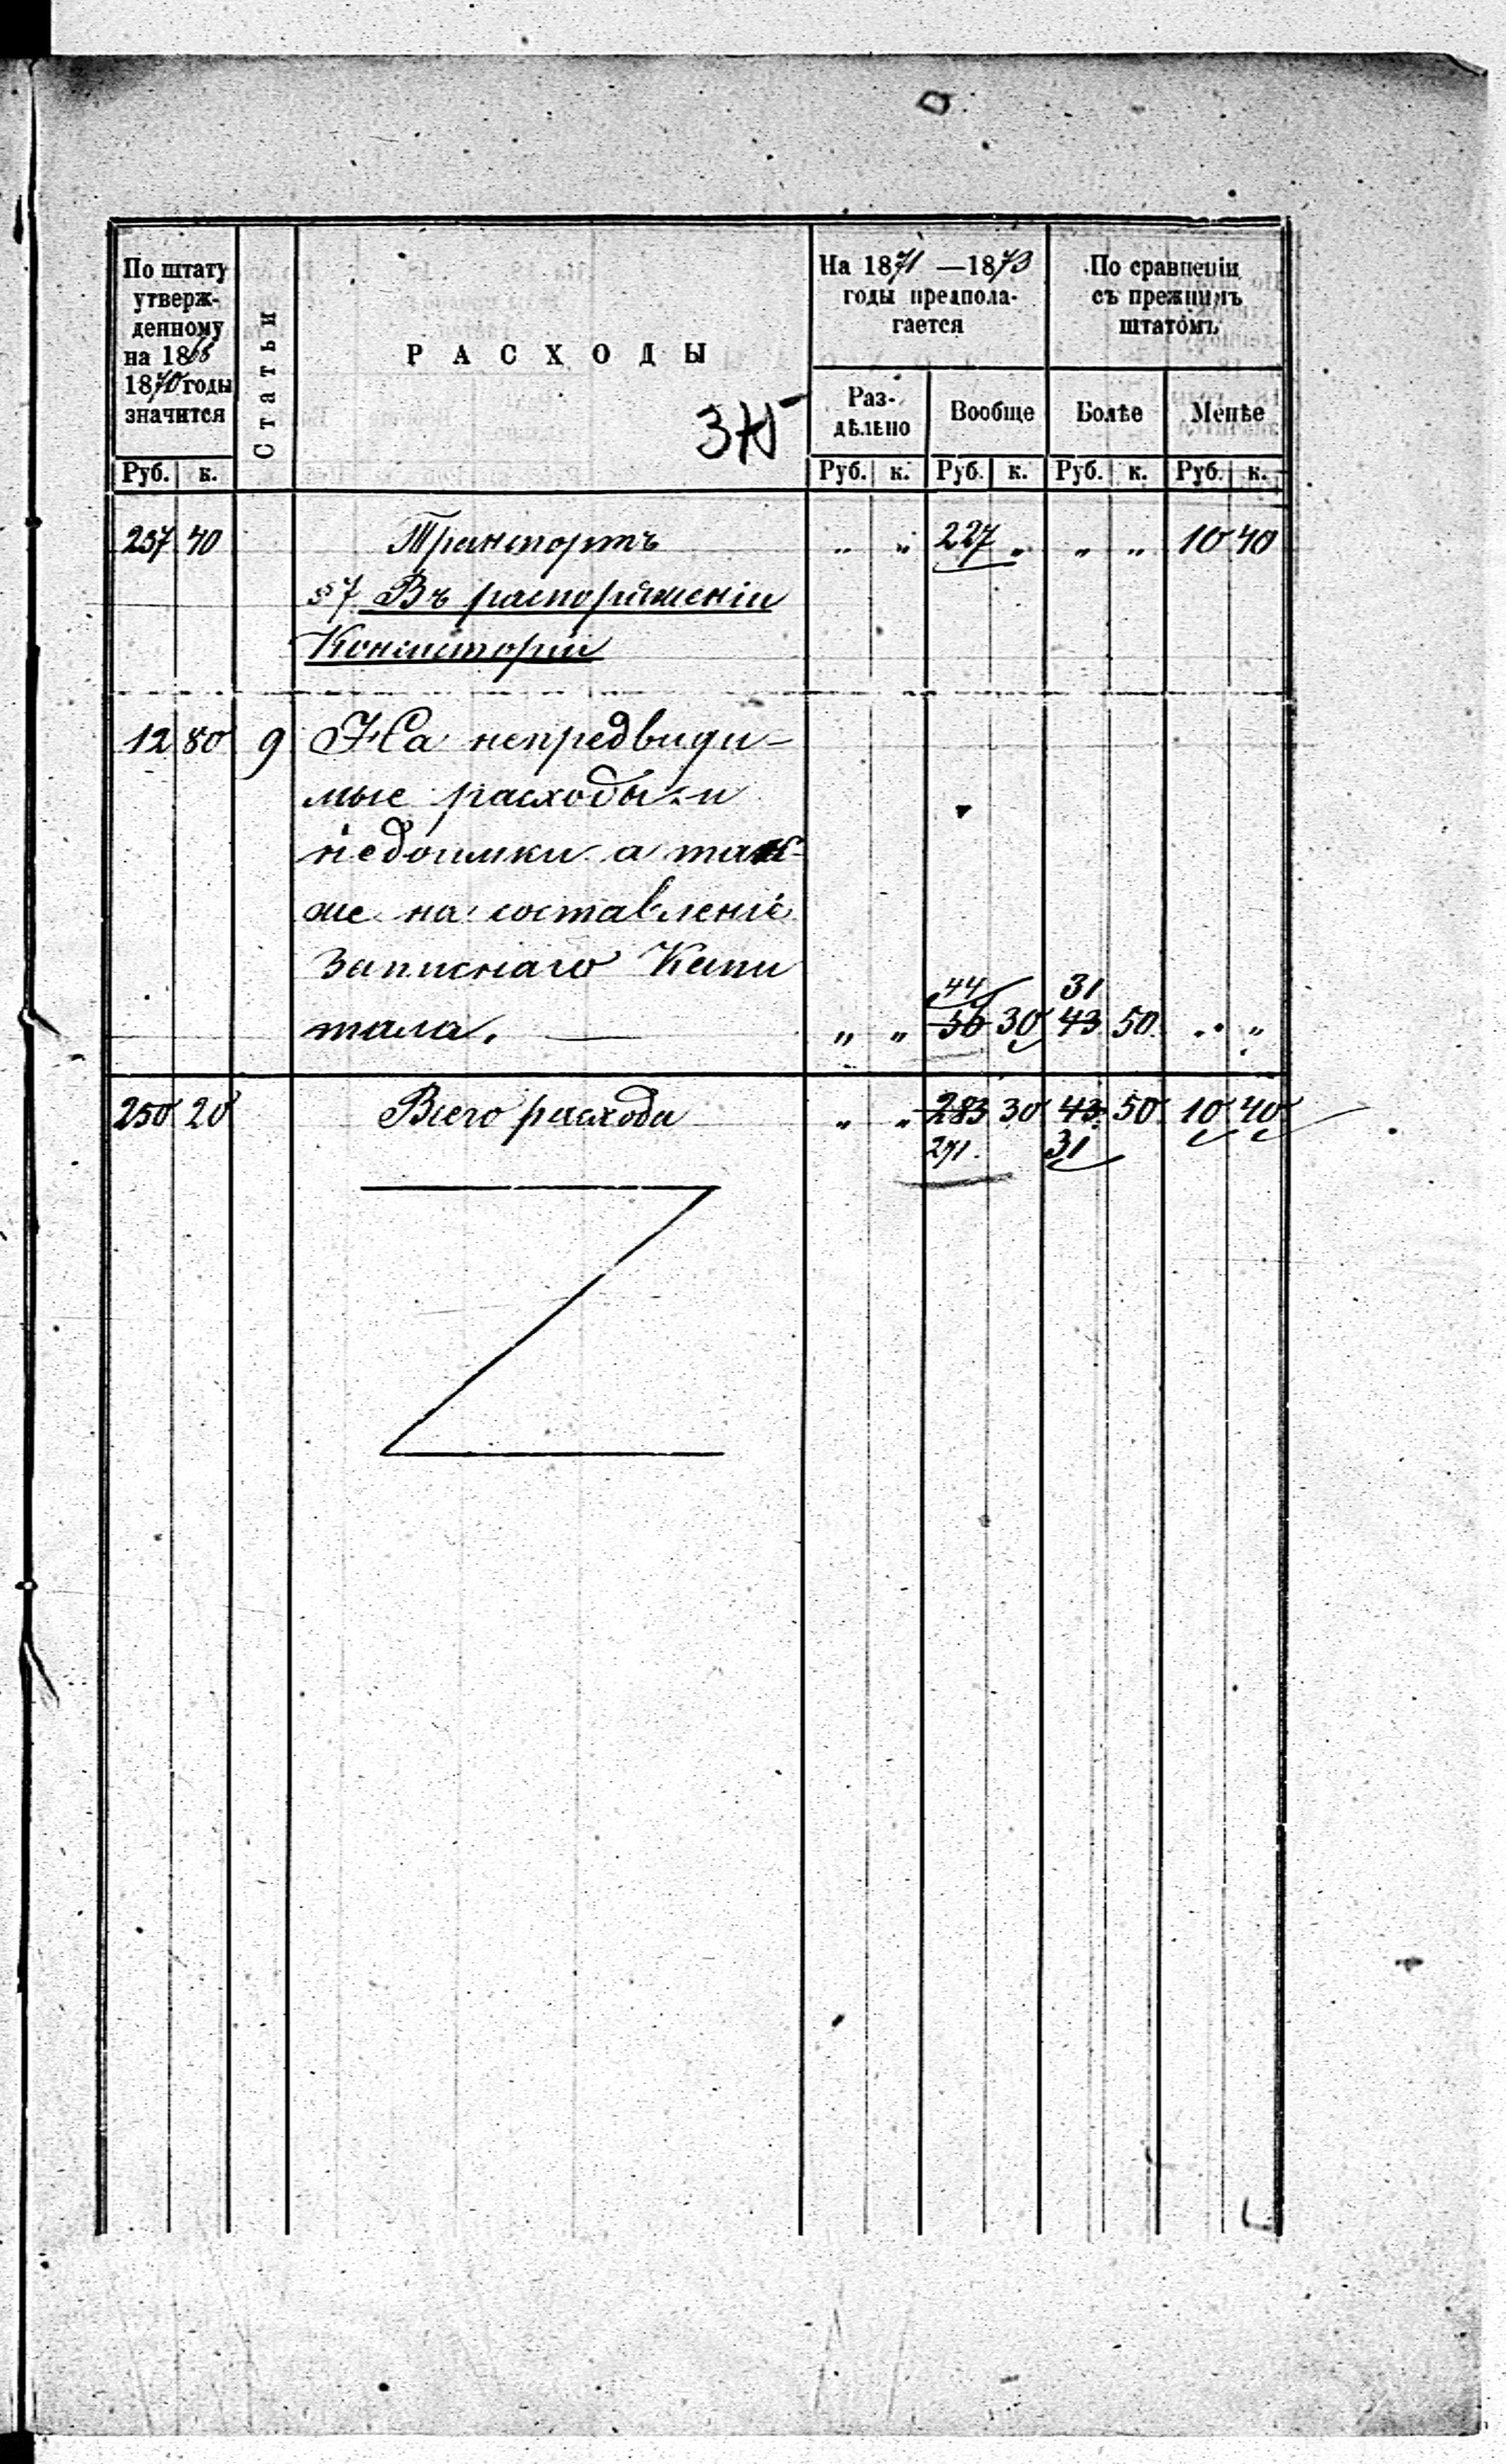 По штату утверж-
денному
на 1868
1870 годы
значится
Статьи
РАСХОДЫ
375
На 1871 —1873
годы предпола-
гается
По сравненіи
съ прежнимъ
штатомъ
Раз-
дѣльно
Вообще
Болѣе
Менѣе
Руб. к. Руб. к. Руб. к. Руб. к. Руб. к.
237 40 Транспортъ „ „ 227 „ „ „ 10 40
§ 7 Въ распоряженіи
Консисторіи
12 80 9 На непредвиди-
мые расходы и
недоимки а так-
же на составленіе
запаснаго Капи
44 31
тала. „ „ 56 30 43 50 „ „
250 20 Всего расхода „ „ 283 30 43 50 10 40
271. 31